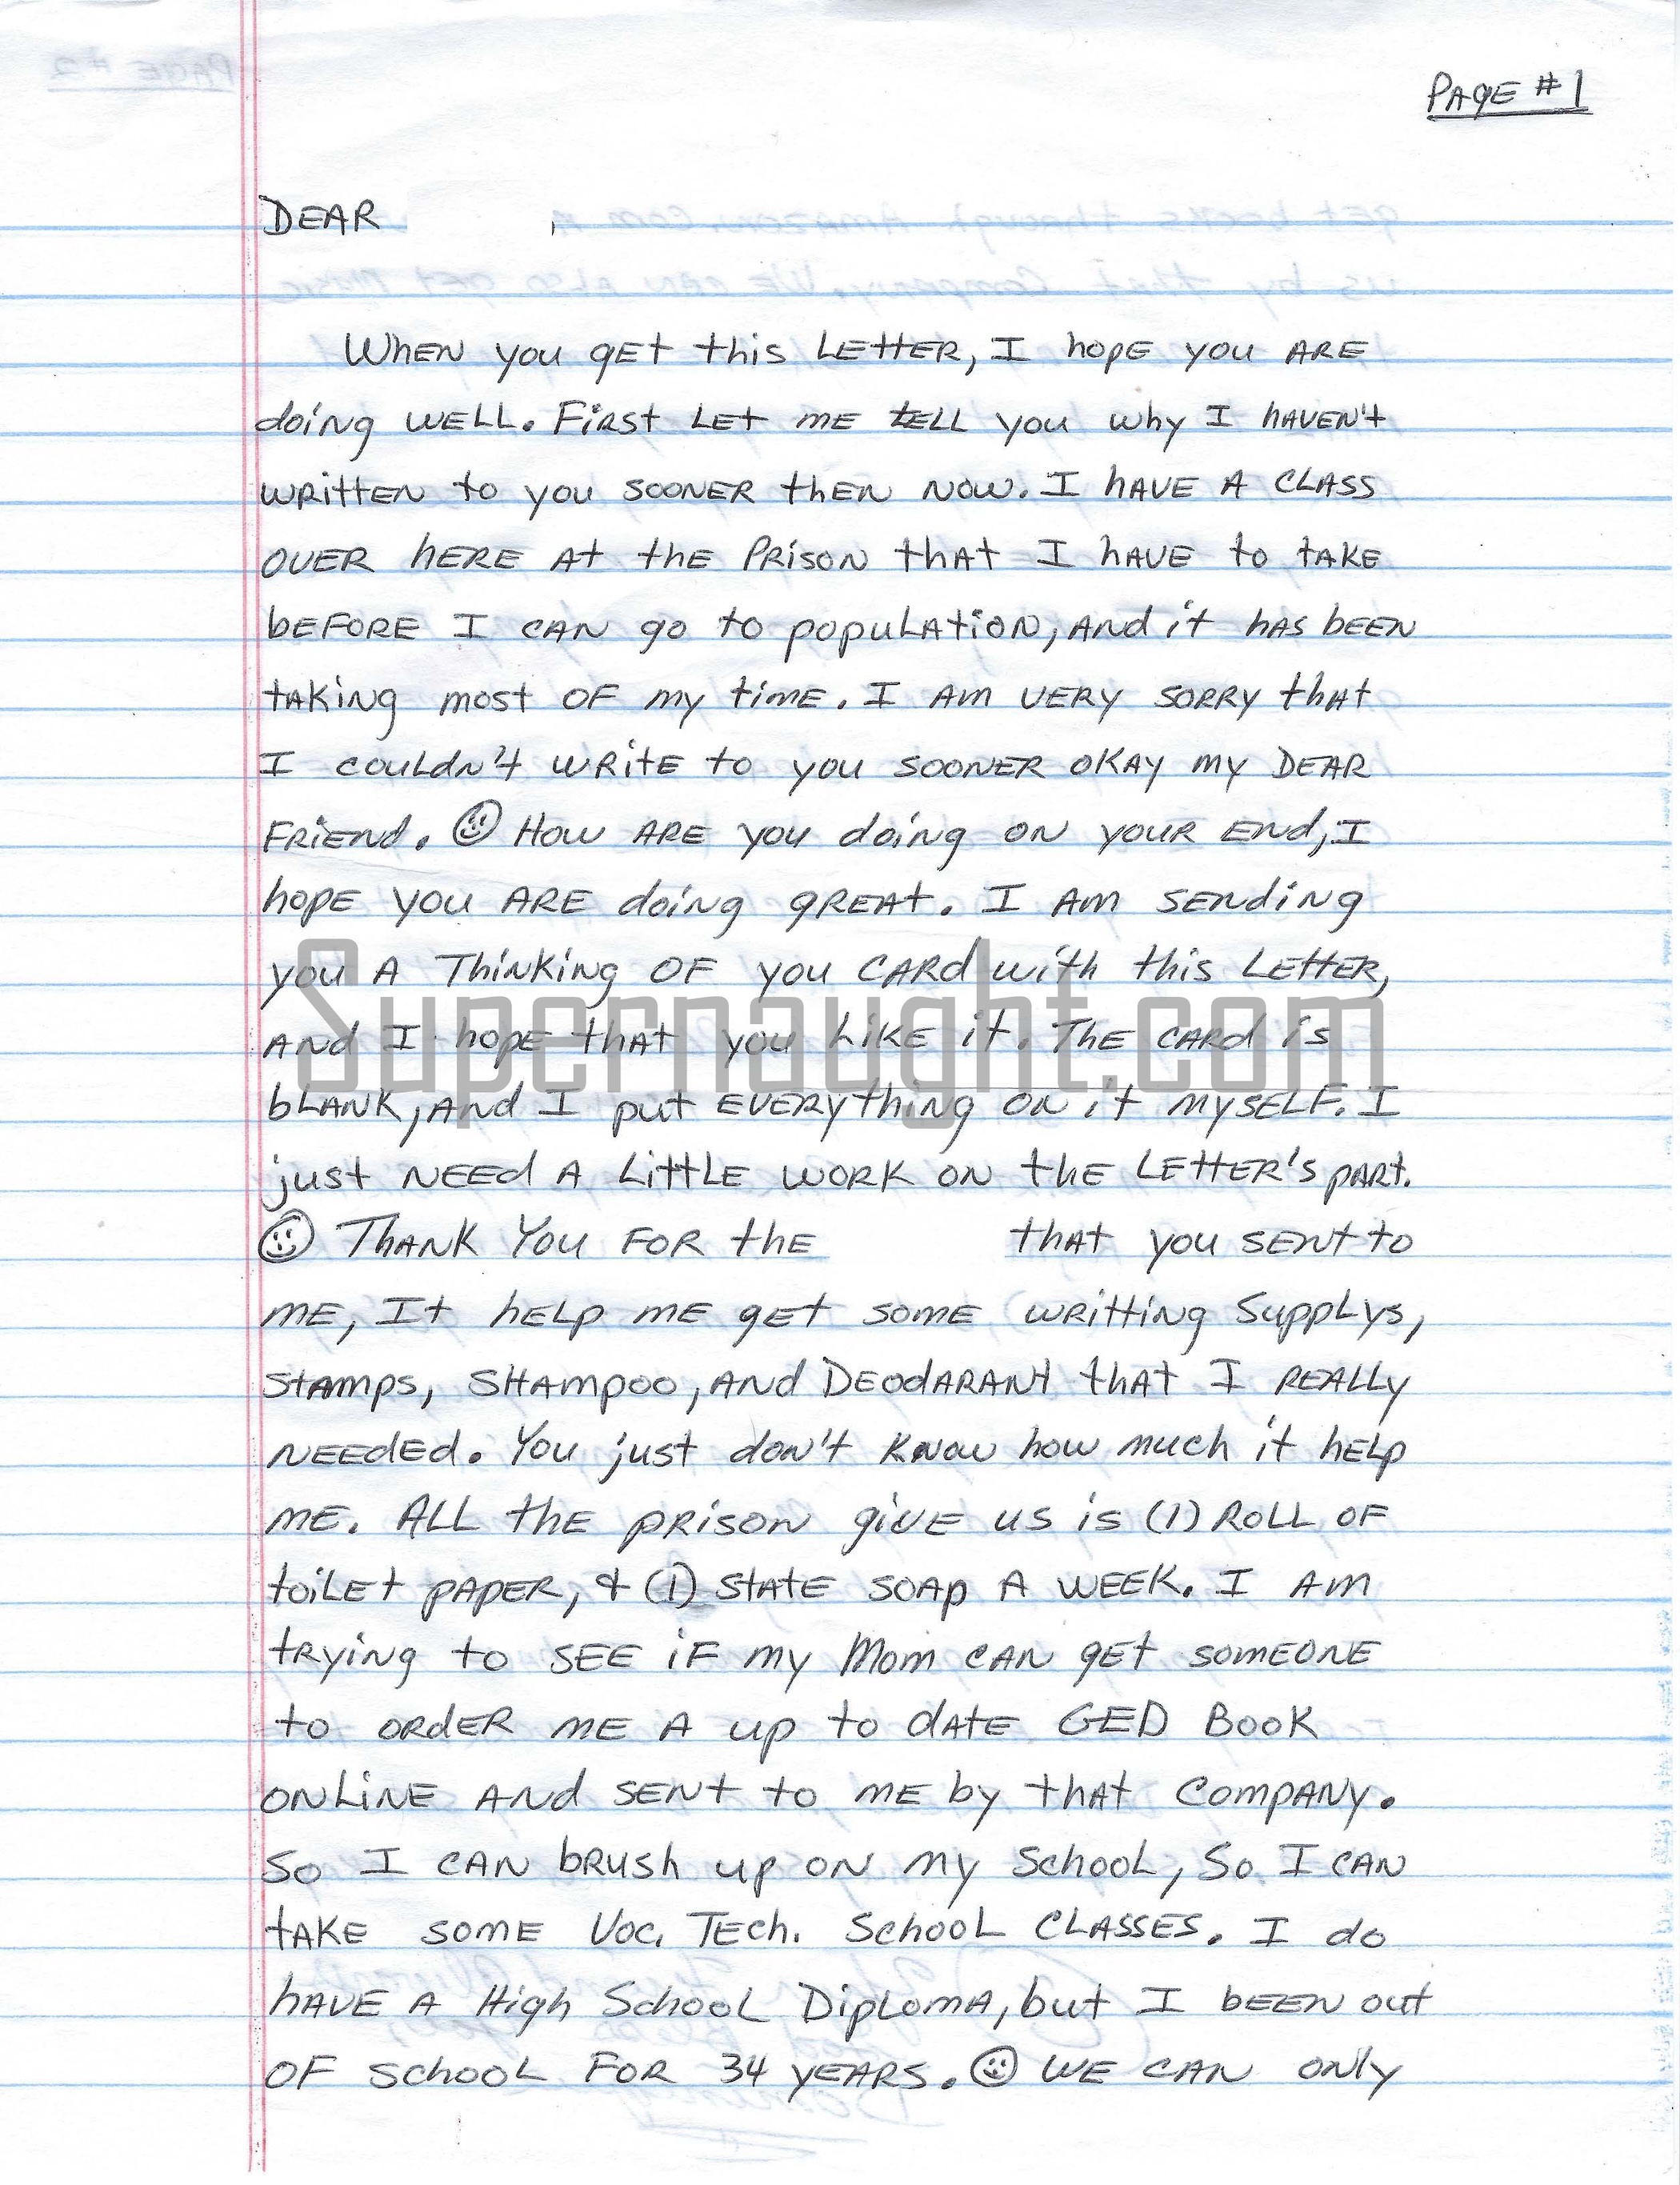 PAGE #1
DEAR ,
When you get this Letter, I hope you are
doing well. First let me tell you why I haven't
written to you sooner then now. I have a class
over here at the Prison that I have to take
before I can go to population, and it has been
taking most of my time. I am very sorry that
I couldn't write to you sooner okay my Dear
Friend. ☺ How are you doing on your end, I
hope you are doing great. I am sending
you a Thinking of you card with this Letter,
Supernaught.com
and I hope that you like it. The card is
blank, and I put everything on it myself. I
just need a little work on the Letter's part.
☺ Thank You for the that you sent to
me, It help me get some writting Supplys,
stamps, shampoo, and Deodarant that I really
needed. You just don't know how much it help
me. All the prison give us is (1) Roll of
toilet paper, & (1) state soap a week. I am
trying to see if my Mom can get someone
to order me a up to date GED Book
online and sent to me by that Company.
So I can brush up on my School, So I can
take some Voc. Tech. School classes. I do
have a High School Diploma, but I been out
of school for 34 years. ☺ We can only